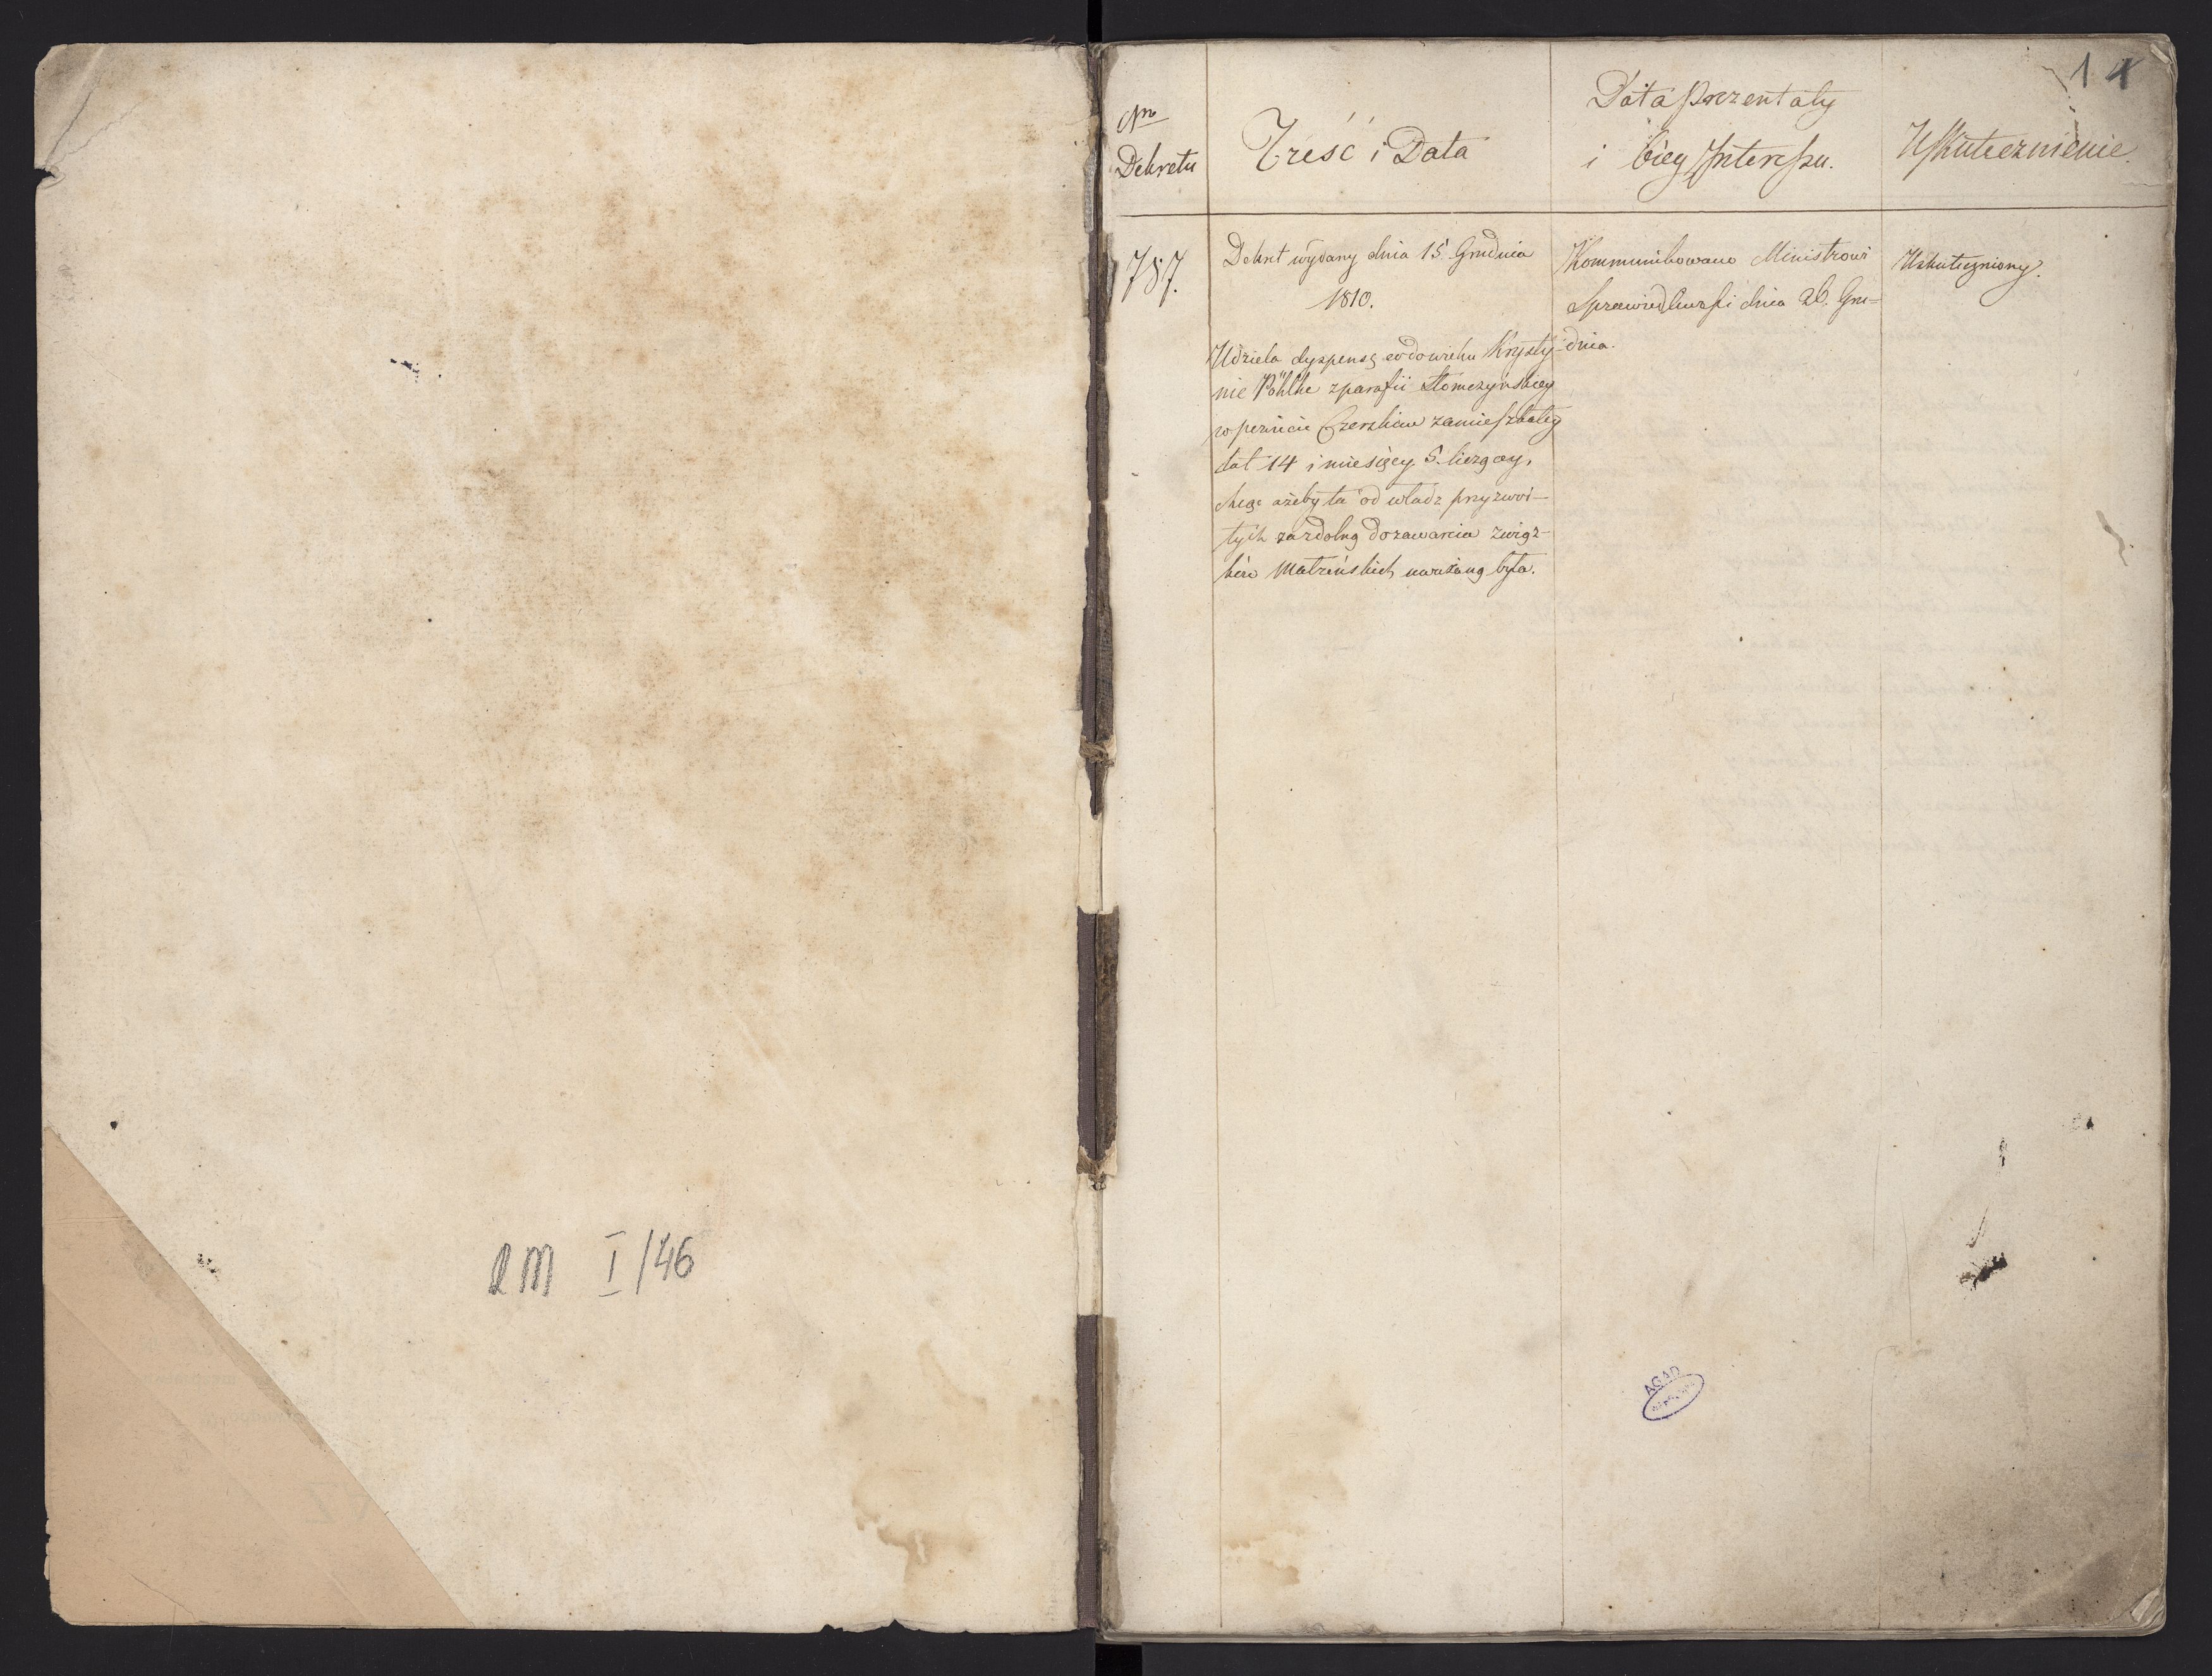 2M I/46
1 4
Nro
Dekretu
Treść i Data
Data prezentaty
i bieg Interessu.
Uskutecznienie.
787.
Dekret wydany dnia 15 Grudnia
1810.
Udziela dyspensę co do wieku Krysty-
nie Pöhlke z parafii Słomczyńskiey
w powiecie Czerskim zamieszkałey
lat 14 i miesięcy 5. liczącey,
chcąc ażeby ta od władz przyzwoi-
tych za zdolną do zawarcia związ-
ków Małżeńskich uważaną była.
Kommunikowano Ministrowi
Sprawiedliwości dnia 26. Gru-
dnia.
Uskuteczniony.
AGAD